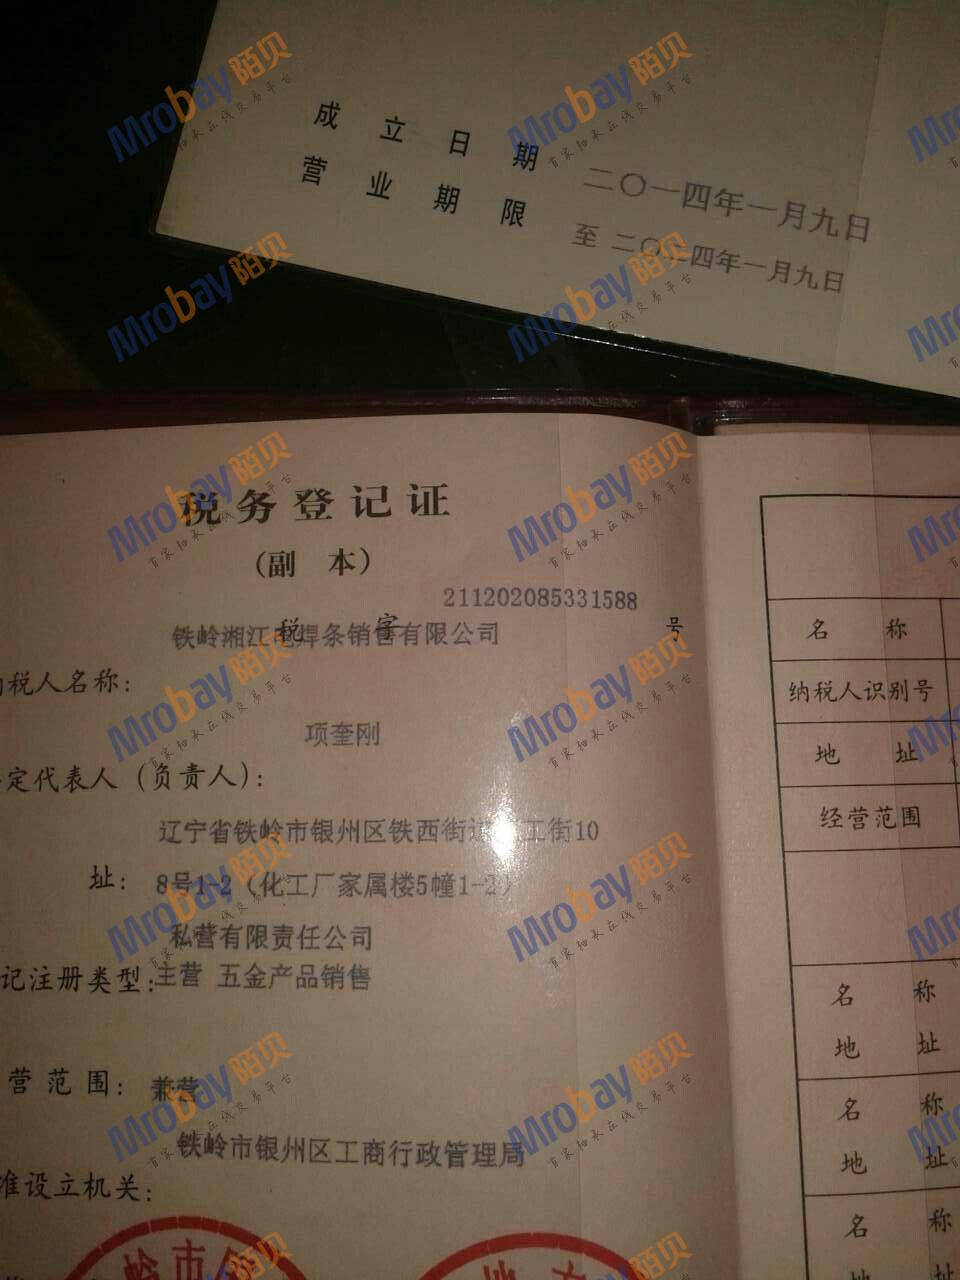 成立日期 二〇一四年一月九日
营业期限 至 二〇二四年一月九日
税务登记证
(副 本)
211202085331588
税 字 号
铁岭湘江电焊条销售有限公司
税人名称:
项奎刚
定代表人(负责人):
辽宁省铁岭市银州区铁西街 工街10
址: 8号1-2(化工厂家属楼5幢1-2)
私营有限责任公司
记注册类型:
主营 五金产品销售
营范围: 兼营
铁岭市银州区工商行政管理局
准设立机关:
岭市银
地方
名 称
纳税人识别号
地 址
经营范围
名 称
地 址
名 称
地 址
名 称
地 址
Mrobay陌贝
首家轴承在线交易平台